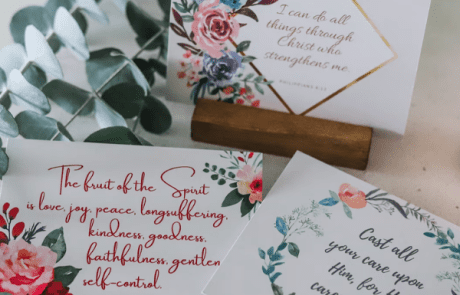 I can do all
things through
Christ who
strengthens me.
The fruit of the Spirit
is love, joy, peace, longsuffering,
kindness, goodness,
faithfulness, gentlen
self-control.
Cast all
your care upon
Him, for h
care